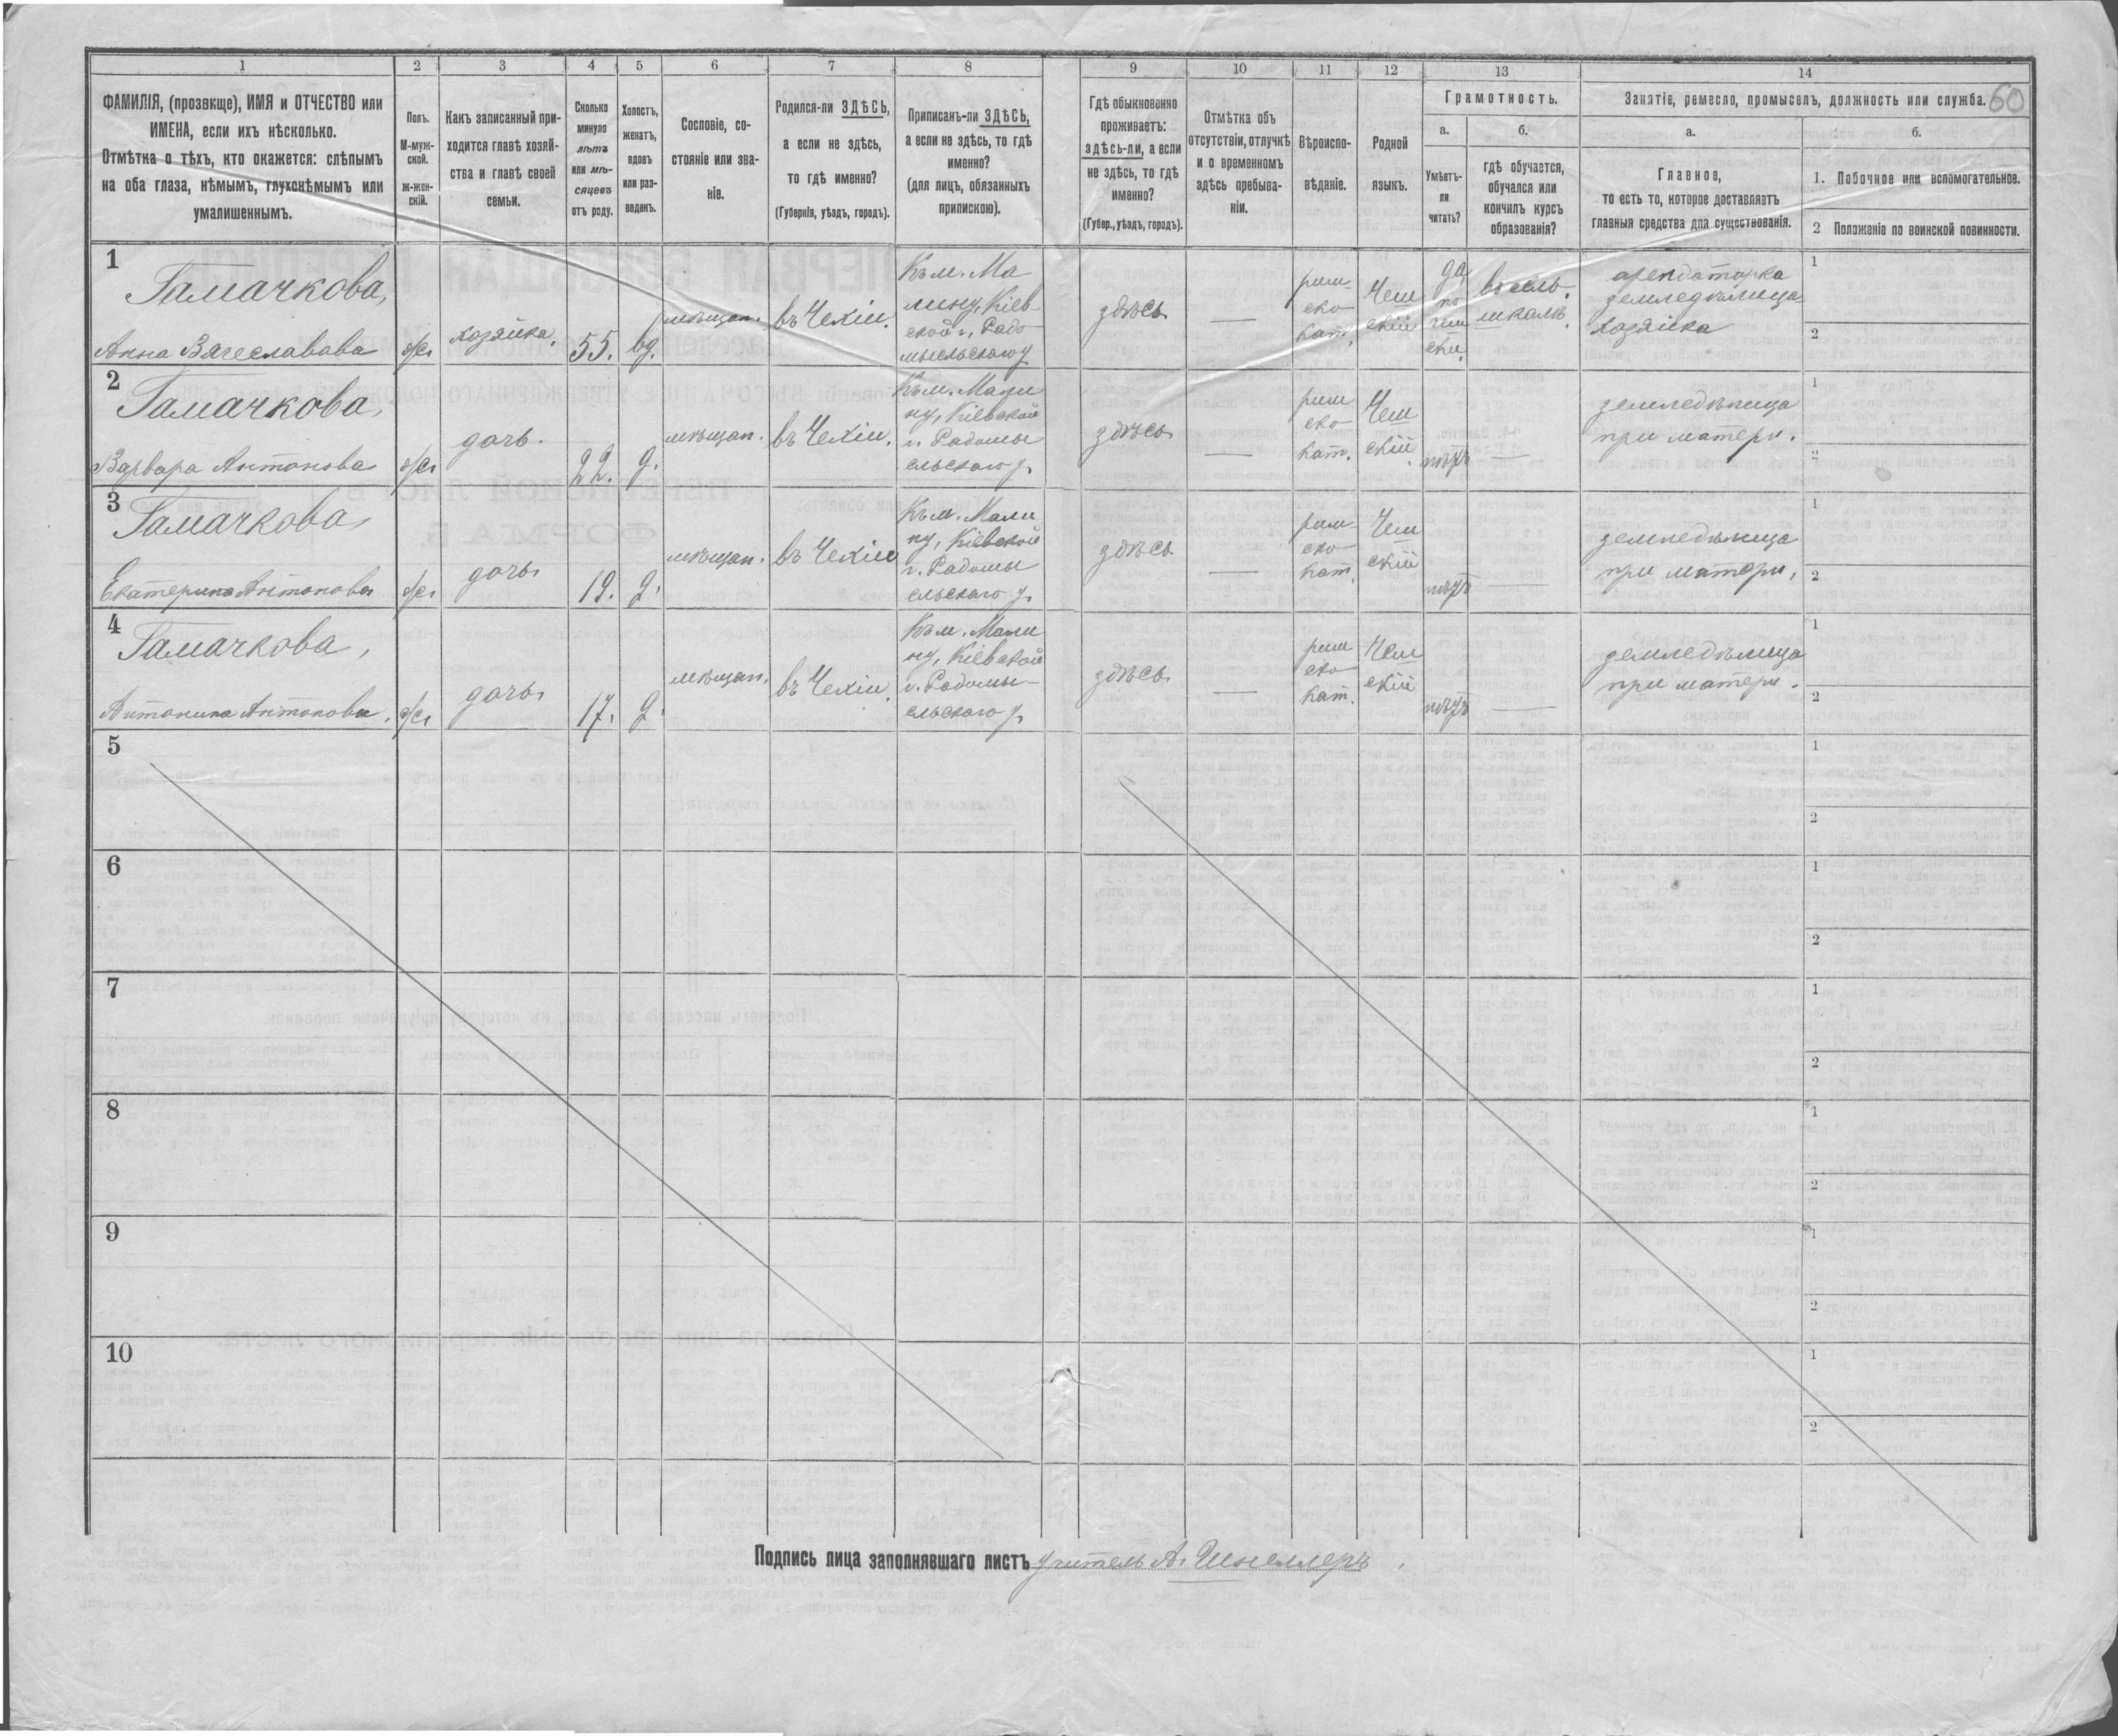 1 2 3 4 5 6 7 8 9 10 11 12 13 14
60
ФАМИЛІЯ, (прозвище), ИМЯ и ОТЧЕСТВО или
ИМЕНА, если ихъ нѣсколько.
Отмѣтка о тѣхъ, кто окажется: слѣпымъ
на оба глаза, нѣмымъ, глухонѣмымъ или
умалишеннымъ.
Полъ.
М-муж-
ской.
ж-жен-
скій.
Какъ записанный при-
ходится главѣ хозяй-
ства и главѣ своей
семьи.
Сколько
минуло
лѣтъ
или мѣ-
сяцевъ
отъ роду.
Холостъ,
женатъ,
вдовъ
или раз-
веденъ.
Сословіе, со-
стояніе или зва-
ніе.
Родился-ли ЗДѢСЬ,
а если не здѣсь,
то гдѣ именно?
(Губернія, уѣздъ, городъ).
Приписанъ-ли ЗДѢСЬ,
а если не здѣсь, то гдѣ
именно?
(для лицъ, обязанныхъ
припискою).
Гдѣ обыкновенно
проживаетъ:
здѣсь-ли, а если
не здѣсь, то гдѣ
именно?
(Губер., уѣздъ, городъ).
Отмѣтка объ
отсутствіи, отлучкѣ
и о временномъ
здѣсь пребыва-
ніи.
Вѣроиспо-
вѣданіе.
Родной
языкъ.
Грамотность.
а.
Умѣетъ-
ли
читать?
б.
гдѣ обучается,
обучался или
кончилъ курсъ
образованія?
Занятіе, ремесло, промыселъ, должность или служба.
а.
Главное,
то есть то, которое доставляетъ
главныя средства для существованія.
б.
1. Побочное или вспомогательное.
2 Положеніе по воинской повинности.
1
Гамачкова,
Анна Вячеславова
ж.
хозяйка.
55.
вд.
мѣщан.
въ Чехіи.
Къ м. Ма
лину, Кіев-
ской г., Радо-
мысльскаго у
здѣсь
—
рим-
ско-
кат.
Чеш
скій
да
по
чеш
ски.
въ сель.
школѣ.
арендаторка
земледѣлица
хозяйка
1
2
2
Гамачкова,
Варвара Антонова
ж.
дочь.
22.
д.
мѣщан.
въ Чехіи.
Къ м. Мали
ну, Кіевской
г. Радомы
сльскаго у.
здѣсь
—
рим
ско-
кат.
Чеш
скій
нѣтъ
—
земледѣлица
при матери.
1
2
3
Гамачкова
Екатерина Антонова
ж.
дочь
19.
д.
мѣщан.
въ Чехіи
Къ м. Мали
ну, Кіевской
г. Радомы
сльскаго у.
здѣсь
—
рим-
ско-
кат.
Чеш
скій
нѣтъ
—
земледѣлица
при матери,
1
2
4
Гамачкова,
Антонина Антонова.
ж.
дочь
17.
д.
мѣщан.
въ Чехіи.
Къ м. Мали
ну, Кіевской
г. Радомы-
сльскаго у.
здѣсь
—
рим
ско-
кат.
Чеш
скій
нѣтъ
—
земледѣлица
при матери.
1
2
5
1
2
6
1
2
7
1
2
8
1
2
9
1
2
10
1
2
Подпись лица заполнявшаго листъ учитель А. Шнеллеръ.